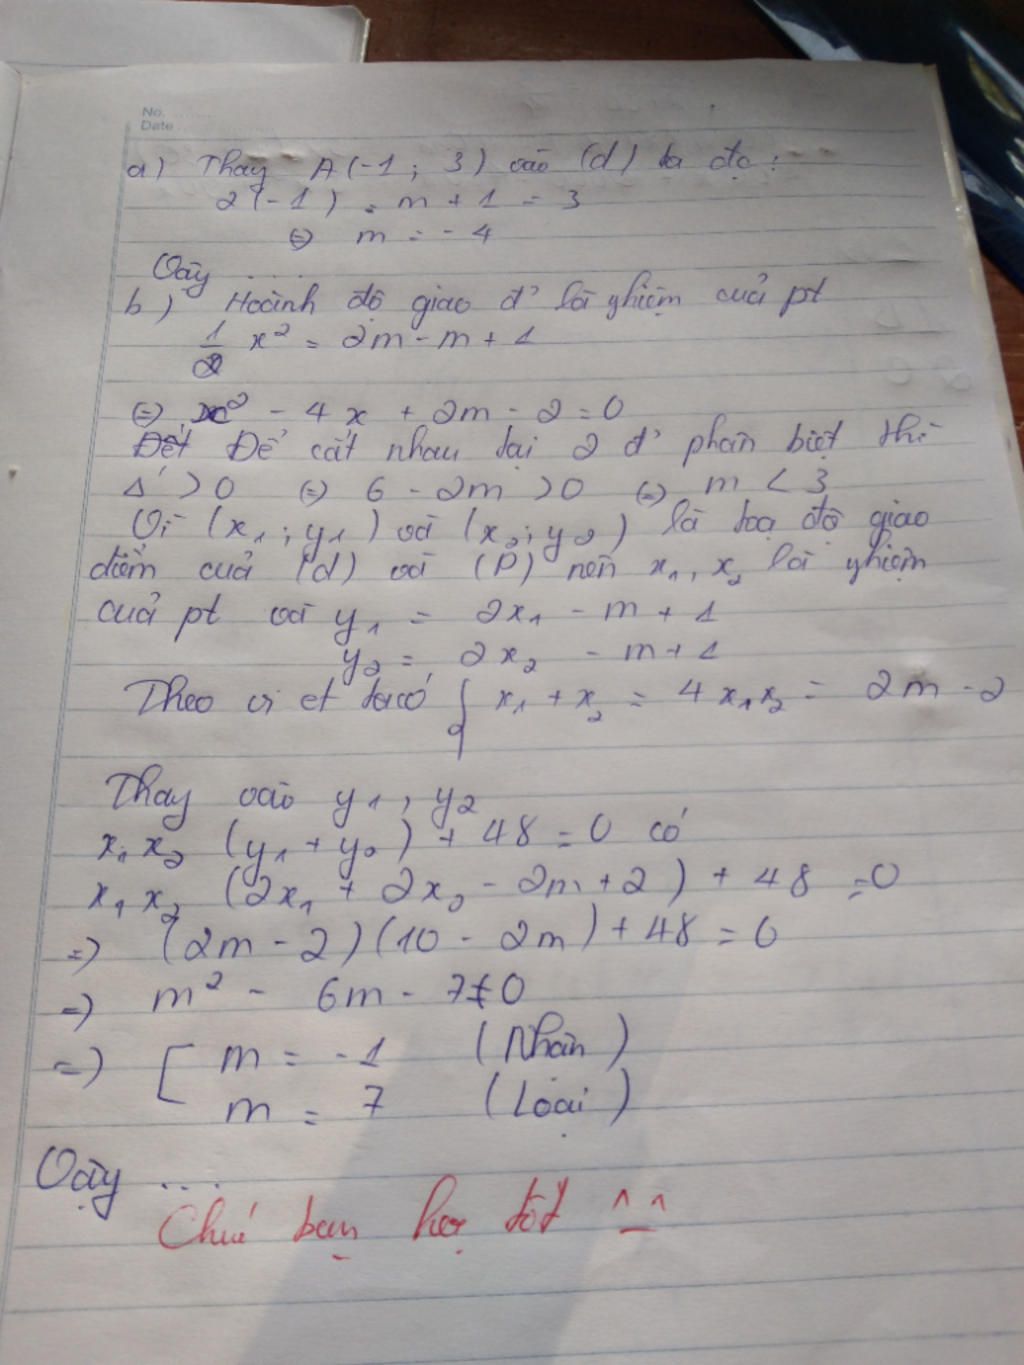 No. ........
Date ....................
a) Thay A(-1 ; 3) vào (d) ta đc :
2(-1) - m + 1 = 3
⇔ m = - 4
Vậy ....
b) Hoành độ giao đ' là nghiệm cuả pt
1/2 x² = 2m - m + 1
⇔ x² - 4x + 2m - 2 = 0
Để cắt nhau tại 2 đ' phân biệt thì
Δ' > 0 ⇔ 6 - 2m > 0 ⇔ m < 3
Vì (x₁ ; y₁) và (x₂ ; y₂) là toạ độ giao
điểm cuả (d) và (P) nên x₁, x₂ là nghiệm
cuả pt và y₁ = 2x₁ - m + 1
y₂ = 2x₂ - m + 1
Theo vi et ta có { x₁ + x₂ = 4 x₁x₂ = 2m - 2
Thay vào y₁, y₂
x₁ x₂ (y₁ + y₂) + 48 = 0 có
x₁ x₂ (2x₁ + 2x₂ - 2m + 2) + 48 = 0
=> (2m - 2)(10 - 2m) + 48 = 0
=> m² - 6m - 7 = 0
=> [ m = -1 (Nhận)
m = 7 (Loại)
Vậy ...
Chúc bạn học tốt ^_^